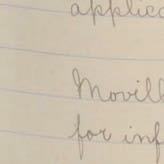 applic
Movill
for inf